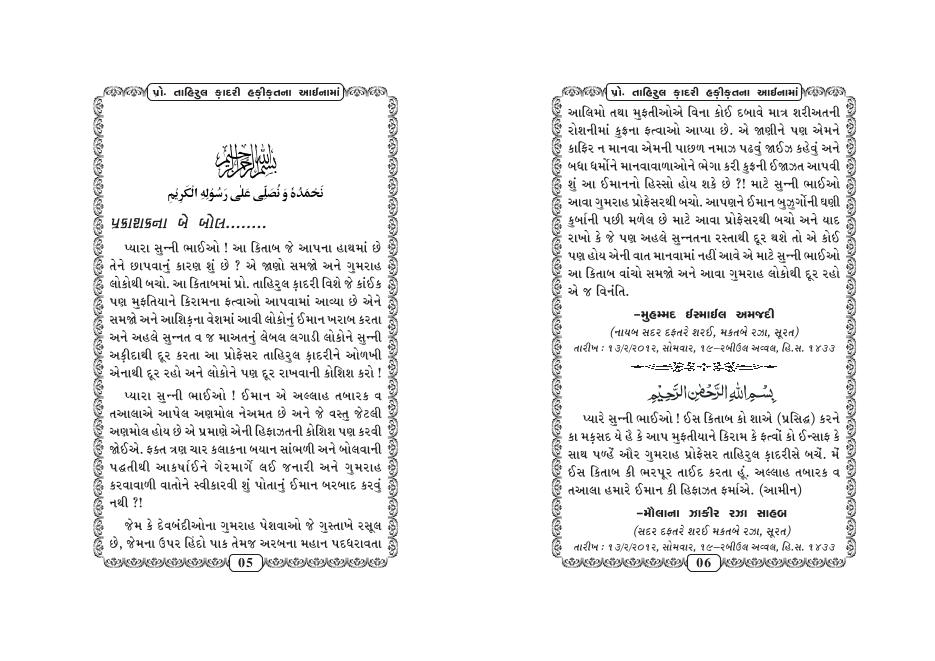 પ્રો. તાહિરુલ ક઼ાદરી હક઼ીક઼તના આઈનામાં
بسم الله الرحمن الرحيم
نَحْمَدُهٗ وَ نُصَلِّى عَلٰى رَسُوْلِهِ الْكَرِيْمِ
પ્રકાશકના બે બોલ........
પ્યારા સુન્ની ભાઈઓ ! આ કિતાબ જે આપના હાથમાં છે
તેને છાપવાનું કારણ શું છે ? એ જાણો સમજો અને ગુમરાહ
લોકોથી બચો. આ કિતાબમાં પ્રો. તાહિરુલ ક઼ાદરી વિશે જે કાંઈક
પણ મુફતિયાને કિરામના ફત્વાઓ આપવામાં આવ્યા છે એને
સમજો અને આશિક઼ના વેશમાં આવી લોકોનું ઈમાન ખરાબ કરતા
અને અહલે સુન્નત વ જ માઅતનું લેબલ લગાડી લોકોને સુન્ની
અક઼ીદાથી દૂર કરતા આ પ્રોફેસર તાહિરુલ ક઼ાદરીને ઓળખી
એનાથી દૂર રહો અને લોકોને પણ દૂર રાખવાની કોશિશ કરો !
પ્યારા સુન્ની ભાઈઓ ! ઈમાન એ અલ્લાહ તબારક વ
તઆલાએ આપેલ અણમોલ નેઅમત છે અને જે વસ્તુ જેટલી
અણમોલ હોય છે એ પ્રમાણે એની હિફાઝતની કોશિશ પણ કરવી
જોઈએ. ફક્ત ત્રણ ચાર કલાકના બયાન સાંભળી અને બોલવાની
પદ્ધતીથી આકર્ષાઈને ગેરમાર્ગે લઈ જનારી અને ગુમરાહ
કરવાવાળી વાતોને સ્વીકારવી શું પોતાનું ઈમાન બરબાદ કરવું
નથી ?!
જેમ કે દેવબંદીઓના ગુમરાહ પેશવાઓ જે ગુસ્તાખે રસૂલ
છે, જેમના ઉપર હિંદો પાક તેમજ અરબના મહાન પદધરાવતા
05
પ્રો. તાહિરુલ ક઼ાદરી હક઼ીક઼તના આઈનામાં
આલિમો તથા મુફતીઓએ વિના કોઈ દબાવે માત્ર શરીઅતની
રોશનીમાં કુફ્રના ફત્વાઓ આપ્યા છે. એ જાણીને પણ એમને
કાફિર ન માનવા એમની પાછળ નમાઝ પઢવું જાઈઝ કહેવું અને
બધા ધર્મોને માનવાવાળાઓને ભેગા કરી કુફ્રની ઈજાઝત આપવી
શું આ ઈમાનનો હિસ્સો હોય શકે છે ?! માટે સુન્ની ભાઈઓ
આવા ગુમરાહ પ્રોફેસરથી બચો. આપણને ઈમાન બુઝુર્ગોની ઘણી
કુર્બાની પછી મળેલ છે માટે આવા પ્રોફેસરથી બચો અને યાદ
રાખો કે જે પણ અહલે સુન્નતના રસ્તાથી દૂર થશે તો એ કોઈ
પણ હોય એની વાત માનવામાં નહીં આવે એ માટે સુન્ની ભાઈઓ
આ કિતાબ વાંચો સમજો અને આવા ગુમરાહ લોકોથી દૂર રહો
એ જ વિનંતિ.
–મુહમ્મદ ઈસ્માઈલ અમજદી
(નાયબ સદર દફતરે શરઈ, મકતબે રઝા, સૂરત)
તારીખ : ૧૩/૨/૨૦૧૨, સોમવાર, ૧૯–રબીઉલ અવ્વલ, હિ.સ. ૧૪૩૩
بِسْمِ اللهِ الرَّحْمٰنِ الرَّحِيْمِ
પ્યારે સુન્ની ભાઈઓ ! ઈસ કિતાબ કો શાએ (પ્રસિદ્ધ) કરને
કા મક઼સદ યે હે કે આપ મુફતીયાને કિરામ કે ફત્વોં કો ઈન્સાફ કે
સાથ પળ્હેં ઔર ગુમરાહ પ્રોફેસર તાહિરુલ ક઼ાદરીસે બચેં. મેં
ઈસ કિતાબ કી ભરપૂર તાઈદ કરતા હૂં. અલ્લાહ તબારક વ
તઆલા હમારે ઈમાન કી હિફાઝત ફર્માએ. (આમીન)
–મૌલાના ઝાકીર રઝા સાહબ
(સદર દફતરે શરઈ મકતબે રઝા, સૂરત)
તારીખ : ૧૩/૨/૨૦૧૨, સોમવાર, ૧૯–રબીઉલ અવ્વલ, હિ.સ. ૧૪૩૩
06